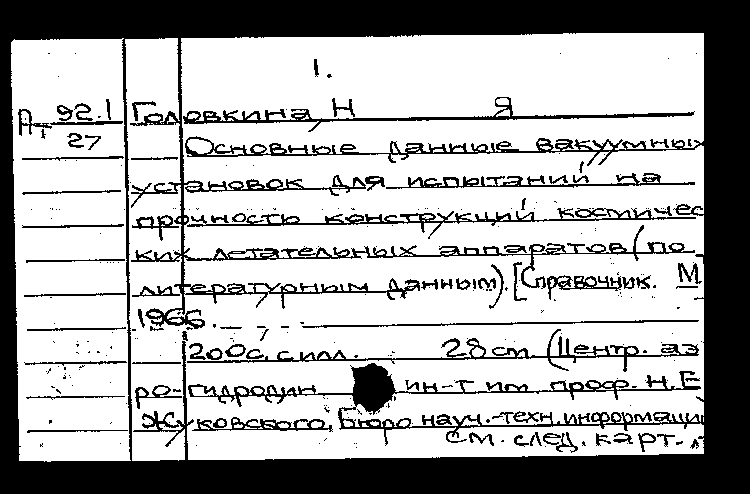 1.
Ат 92.1 Головкина, Н Я
27
Основные данные вакуумных
установок для испытаний на
прочность конструкций космичес
ких летательных аппаратов (по
литературным данным). [Справочник. М
1966.
200с. с илл. 28 см (Центр. аэ
ро-гидродин ин-т им. проф. Н.Е
Жуковского. Бюро науч.-техн. информации
см. след. карт.